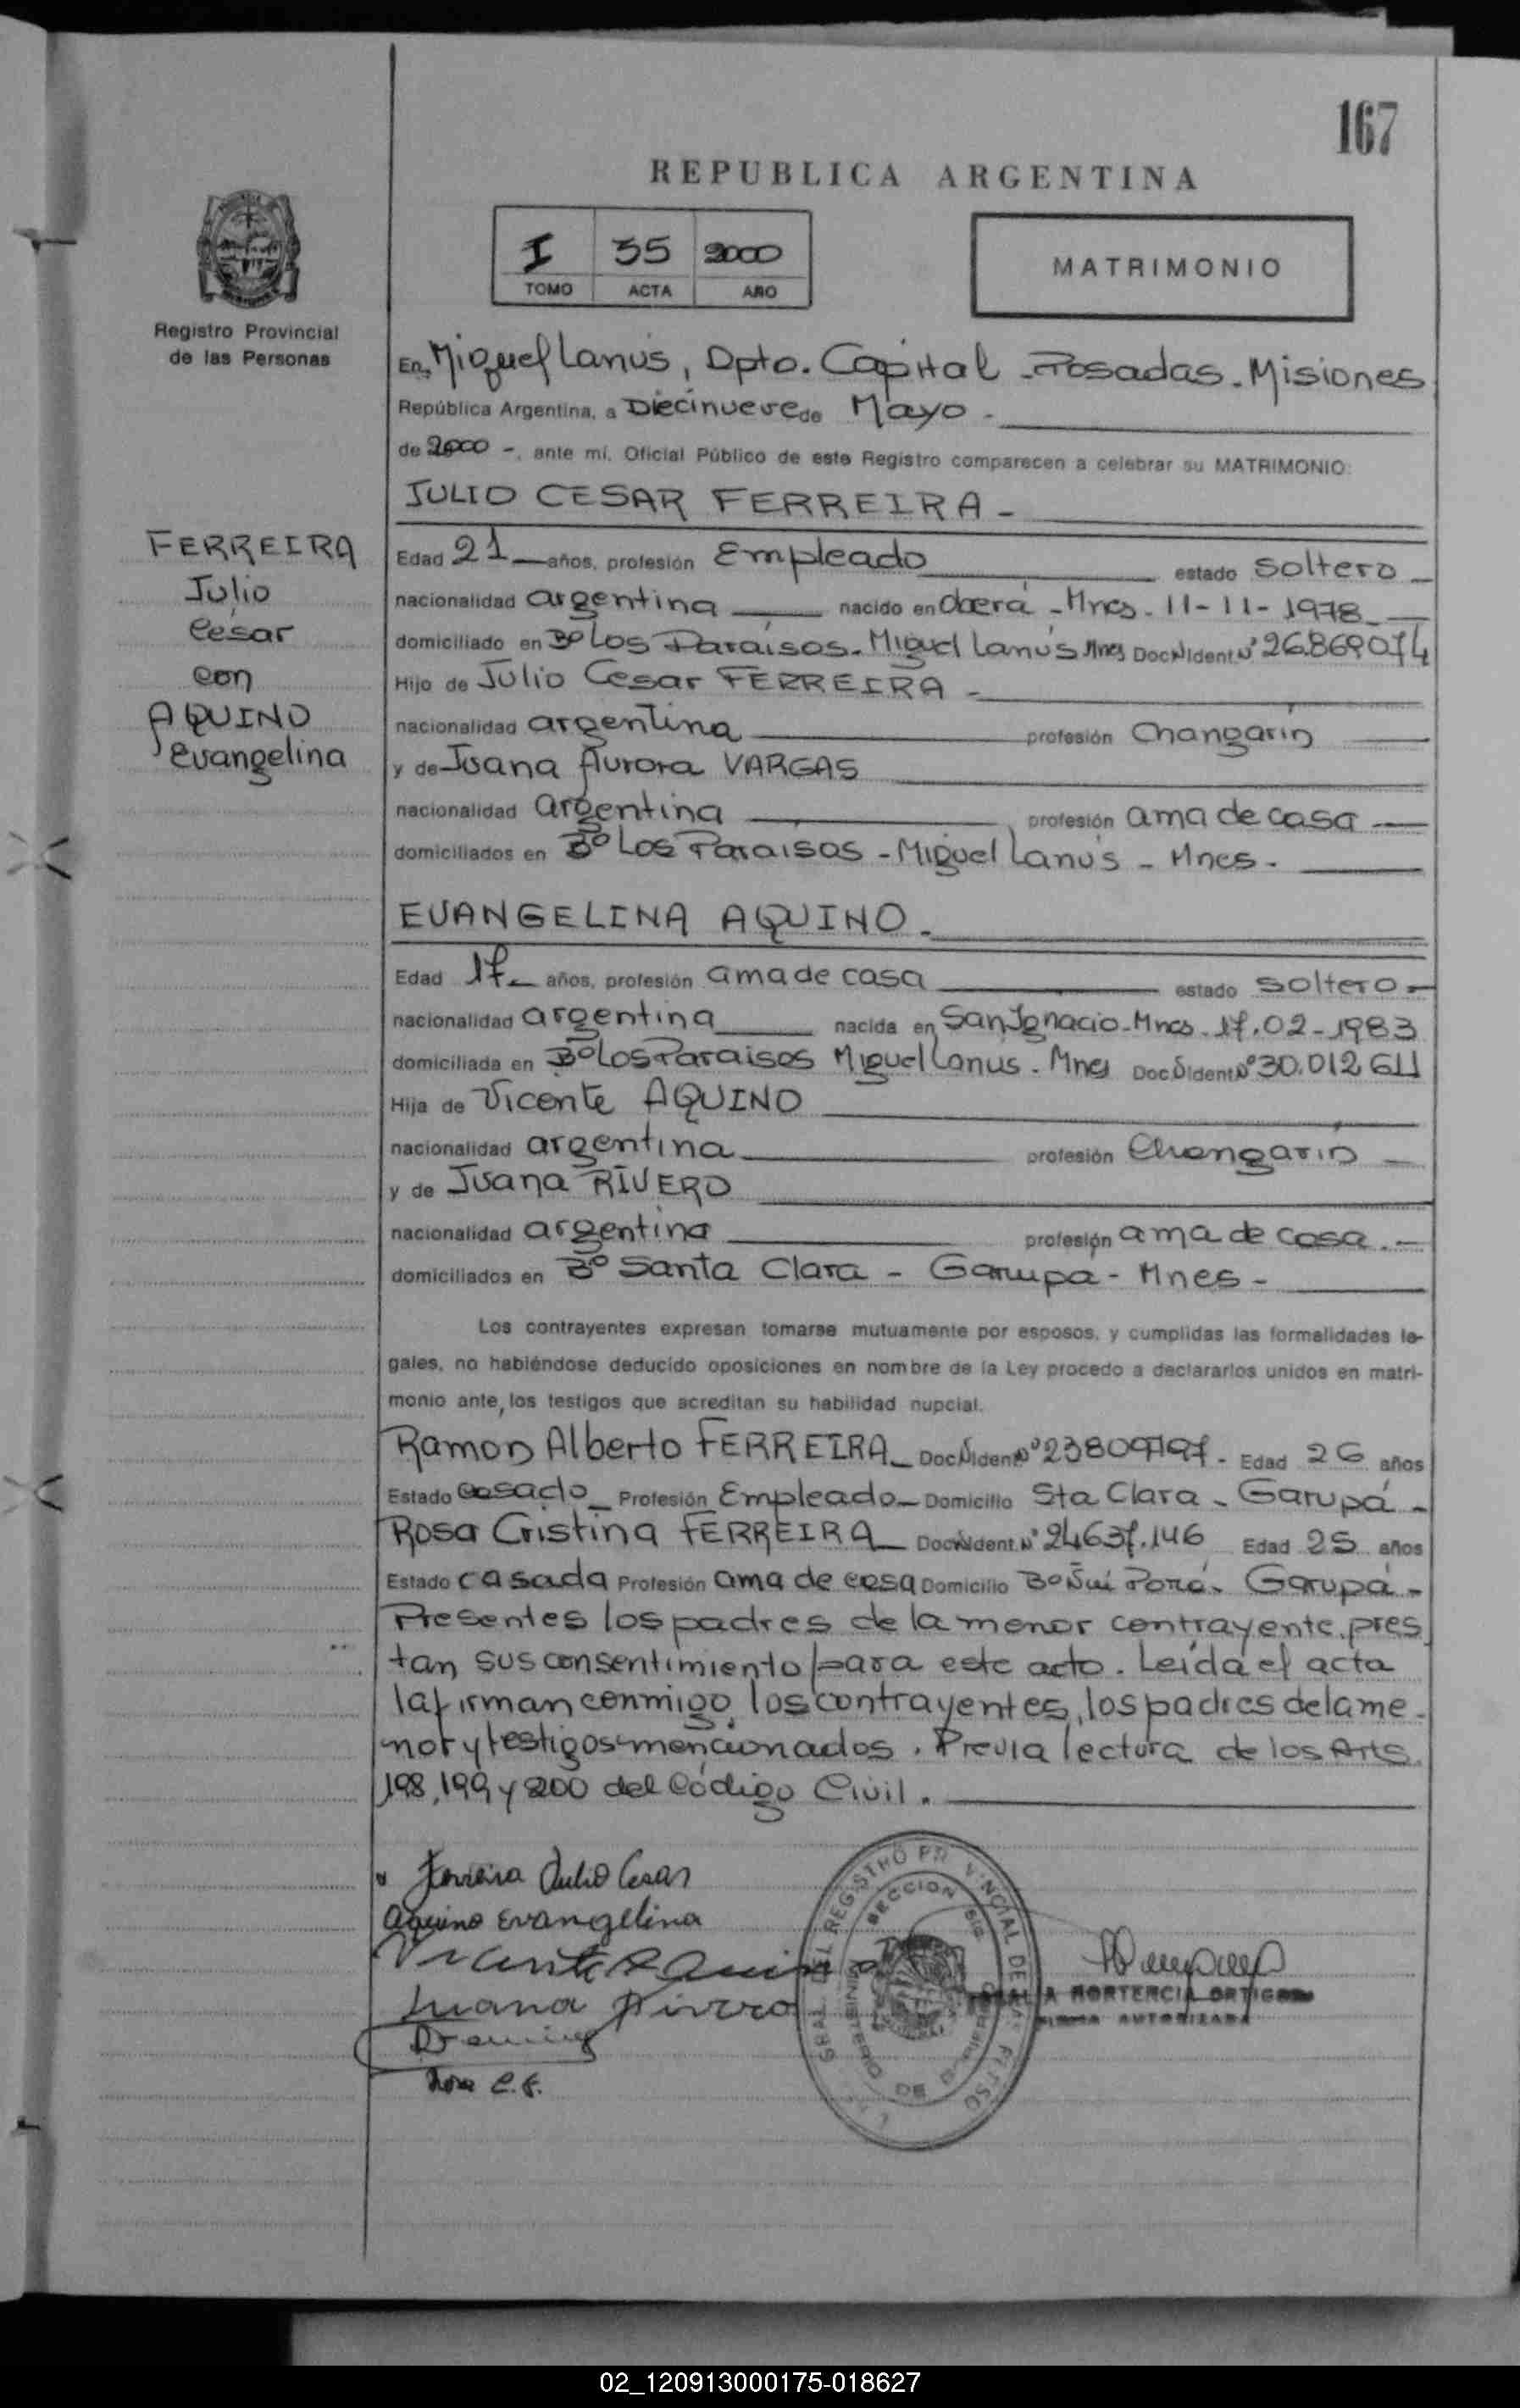 167
REPUBLICA ARGENTINA
I 35 2000
TOMO ACTA AÑO
MATRIMONIO
Registro Provincial
de las Personas
En Miguel Lanús, Dpto. Capital - Posadas - Misiones
República Argentina, a Diecinueve de Mayo -
de 2000 -, ante mí, Oficial Público de este Registro comparecen a celebrar su MATRIMONIO:
JULIO CESAR FERREIRA -
FERREIRA
Julio
César
con
AQUINO
Evangelina
Edad 21 años, profesión Empleado estado soltero
nacionalidad argentina nacido en Oberá - Mnes - 11-11-1978
domiciliado en Bº Los Paraísos - Miguel Lanús Mnes Doc N Ident Nº 26.869.074
Hijo de Julio Cesar FERREIRA -
nacionalidad argentina profesión Changarín
y de Juana Aurora VARGAS
nacionalidad argentina profesión ama de casa
domiciliados en Bº Los Paraisos - Miguel Lanús - Mnes -
EVANGELINA AQUINO -
Edad 17 años, profesión ama de casa estado soltero -
nacionalidad argentina nacida en San Ignacio - Mnes - 17.02-1983
domiciliada en Bº Los Paraisos Miguel Lanus - Mnes Doc N Ident Nº 30.012.611
Hija de Vicente AQUINO
nacionalidad argentina profesión Changarín
y de Juana RIVERO
nacionalidad argentina profesión ama de casa. -
domiciliados en Bº Santa Clara - Garupa - Mnes -
Los contrayentes expresan tomarse mutuamente por esposos, y cumplidas las formalidades le-
gales, no habiéndose deducido oposiciones en nombre de la Ley procedo a declararlos unidos en matri-
monio ante los testigos que acreditan su habilidad nupcial.
Ramon Alberto FERREIRA - Doc N Ident Nº - Edad 26 años
Estado Casado - Profesión Empleado - Domicilio Sta Clara - Garupá -
Rosa Cristina FERREIRA - Doc N Ident Nº 24637.146 Edad 25 años
Estado casada Profesión ama de casa Domicilio Bº Ñu Porá - Garupá -
Presentes los padres de la menor contrayente, pres
tan sus consentimiento para este acto. Leída el acta
la firman conmigo, los contrayentes, los padres de la me-
nor y testigos mencionados. Previa lectura de los Arts.
198, 199 y 200 del Código Civil.
Ferreira Julio Cesar
Aquino Evangelina
Vicente Aquino
Juana Rivero
HORTENCIA ORTIGOZA
FIRMA AUTORIZADA
Rosa C. F.
02_120913000175-018627